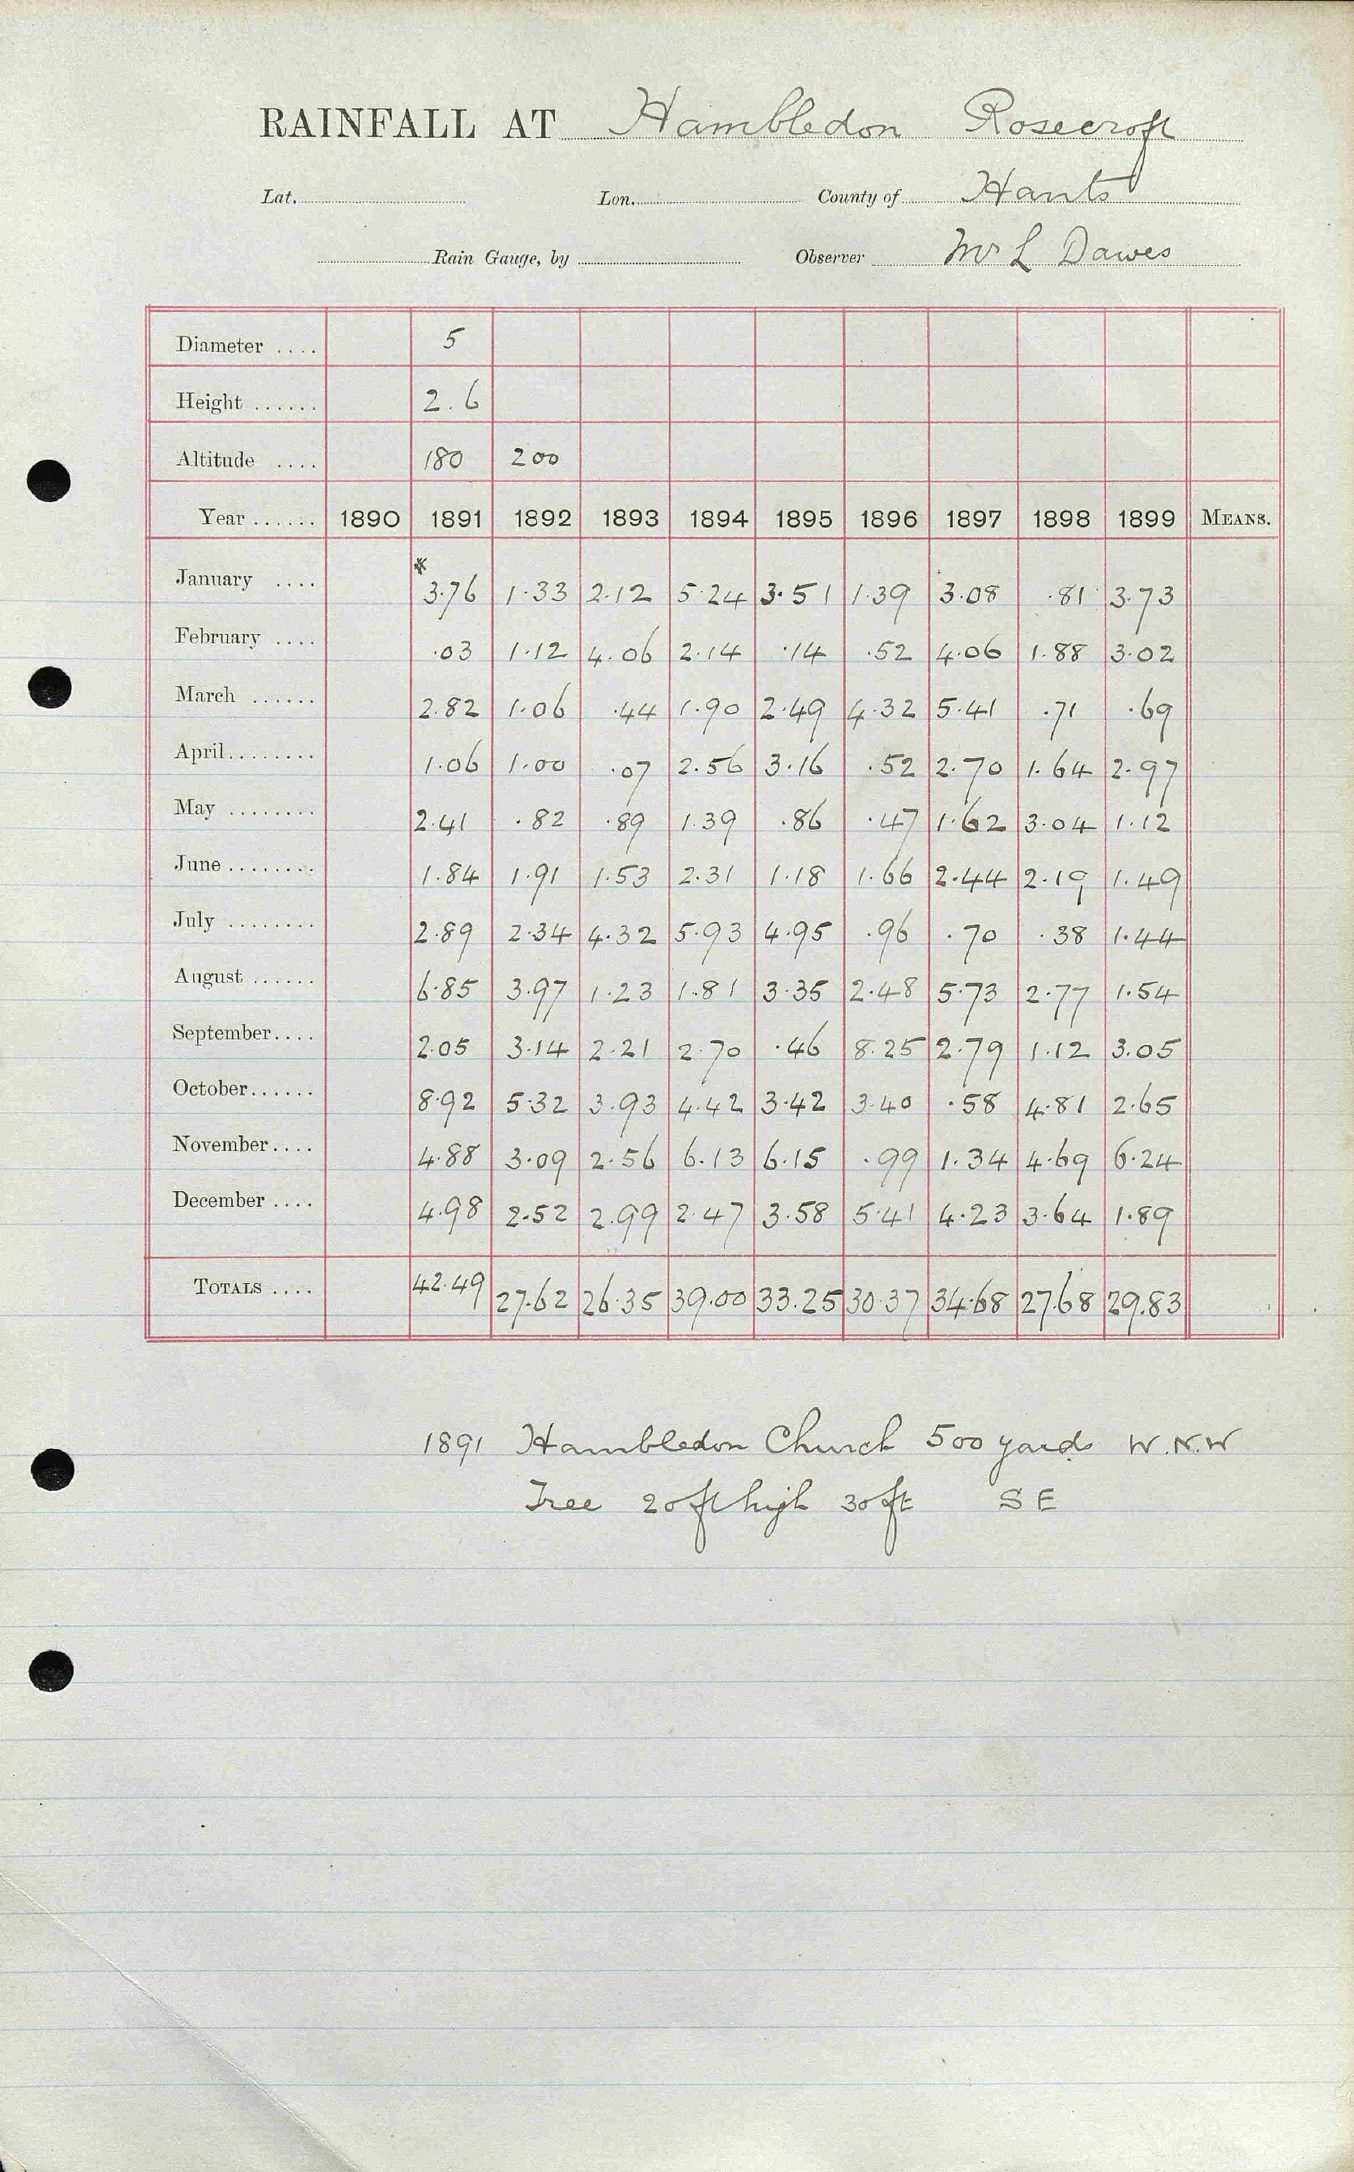 RAINFALL AT Hambledon Rosecroft
Lat. Lon. County of Hants
Rain Gauge, by Observer Mr L Dawes
Diameter .... 5
Height ...... 2.6
Altitude .... 180 200
Year ...... 1890 1891 1892 1893 1894 1895 1896 1897 1898 1899 MEANS.
January .... * 3.76 1.33 2.12 5.24 3.51 1.39 3.08 .81 3.73
February .... .03 1.12 4.06 2.14 .14 .52 4.06 1.88 3.02
March ...... 2.82 1.06 .44 1.90 2.49 4.32 5.41 .71 .69
April........ 1.06 1.00 .07 2.56 3.16 .52 2.70 1.64 2.97
May ........ 2.41 .82 .89 1.39 .86 .47 1.62 3.04 1.12
June ........ 1.84 1.91 1.53 2.31 1.18 1.66 2.44 2.19 1.49
July ........ 2.89 2.34 4.32 5.93 4.95 .96 .70 .38 1.44
August ...... 6.85 3.97 1.23 1.81 3.35 2.48 5.73 2.77 1.54
September.... 2.05 3.14 2.21 2.70 .46 8.25 2.79 1.12 3.05
October...... 8.92 5.32 3.93 4.42 3.42 3.40 .58 4.81 2.65
November.... 4.88 3.09 2.56 6.13 6.15 .99 1.34 4.69 6.24
December .... 4.98 2.52 2.99 2.47 3.58 5.41 4.23 3.64 1.89
TOTALS .... 42.49 27.62 26.35 39.00 33.25 30.37 34.68 27.68 29.83
1891 Hambledon Church 500 yards W.N.W
Tree 20ft high 30ft SE